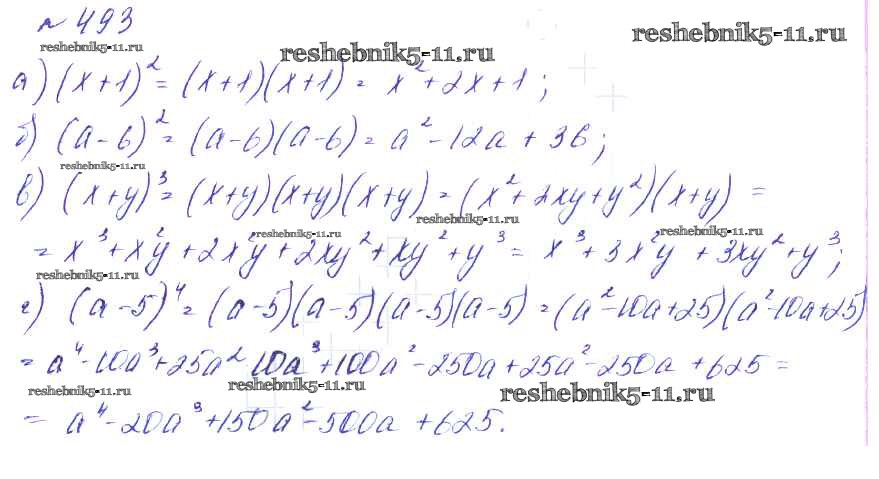 № 493
reshebnik5-11.ru reshebnik5-11.ru reshebnik5-11.ru
а) (x+1)² = (x+1)(x+1) = x²+2x+1;
б) (a-6)² = (a-6)(a-6) = a²-12a+36;
reshebnik5-11.ru
в) (x+y)³ = (x+y)(x+y)(x+y) = (x²+2xy+y²)(x+y) =
reshebnik5-11.ru
reshebnik5-11.ru reshebnik5-11.ru
= x³+x²y+2x²y+2xy²+xy²+y³ = x³+3x²y+3xy²+y³;
reshebnik5-11.ru
г) (a-5)⁴ = (a-5)(a-5)(a-5)(a-5) = (a²-10a+25)(a²-10a+25)
= a⁴-10a³+25a² 10a³+100a²-250a+25a²-250a+625 =
reshebnik5-11.ru reshebnik5-11.ru reshebnik5-11.ru
= a⁴-20a³+150a²-500a+625.